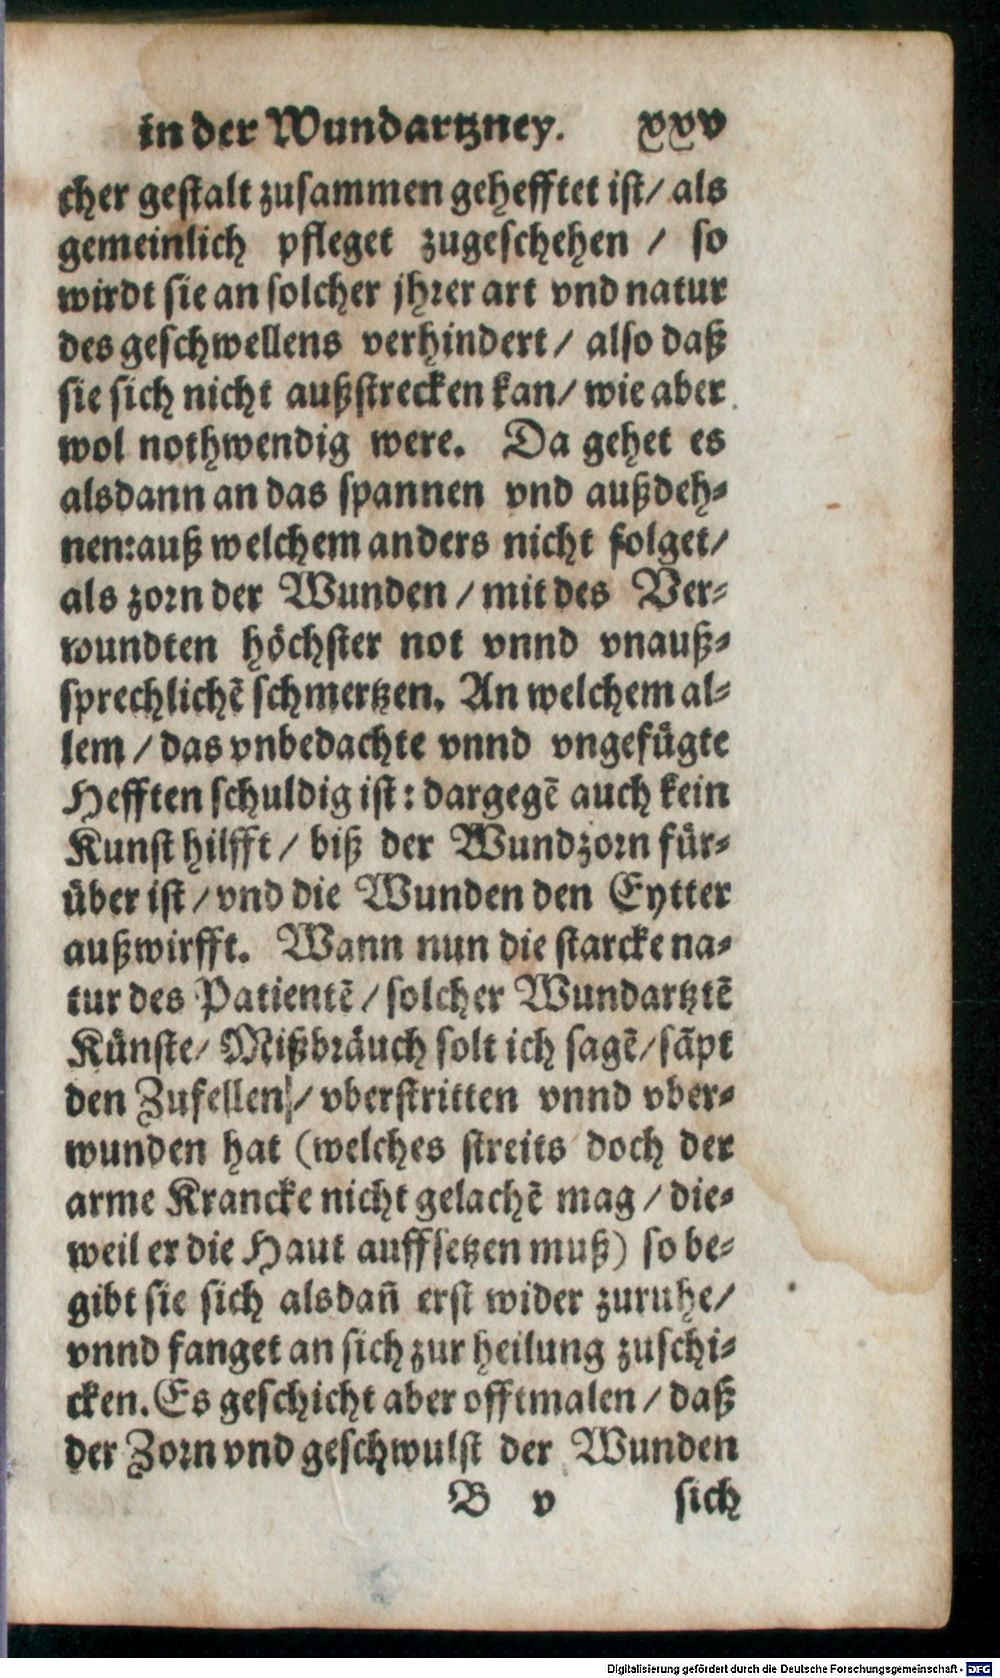 in der Wundartzney. xxv
cher gestalt zusammen gehefftet ist/ als
gemeinlich pfleget zugeschehen / so
wirdt sie an solcher jhrer art vnd natur
des geschwellens verhindert/ also daß
sie sich nicht außstrecken kan/ wie aber
wol nothwendig were. Da gehet es
alsdann an das spannen vnd außdeh⸗
nen:auß welchem anders nicht folget/
als zorn der Wunden / mit des Ver⸗
wundten höchster not vnnd vnauß⸗
sprechlichẽ schmertzen. An welchem al⸗
lem / das vnbedachte vnnd vngefügte
Hefften schuldig ist: dargegẽ auch kein
Kunst hilfft / biß der Wundzorn für⸗
über ist / vnd die Wunden den Eytter
außwirfft. Wann nun die starcke na⸗
tur des Patientẽ / solcher Wundartztẽ
Künste/ Mißbräuch solt ich sagẽ/ sãpt
den Zufellen/ vberstritten vnnd vber⸗
wunden hat (welches streits doch der
arme Krancke nicht gelachẽ mag / die⸗
weil er die Haut auffsetzen muß) so be⸗
gibt sie sich alsdañ erst wider zuruhe/
vnnd fanget an sich zur heilung zuschi⸗
cken. Es geschicht aber offtmalen / daß
der Zorn vnd geschwulst der Wunden
B v sich
Digitalisierung gefördert durch die Deutsche Forschungsgemeinschaft - DFG